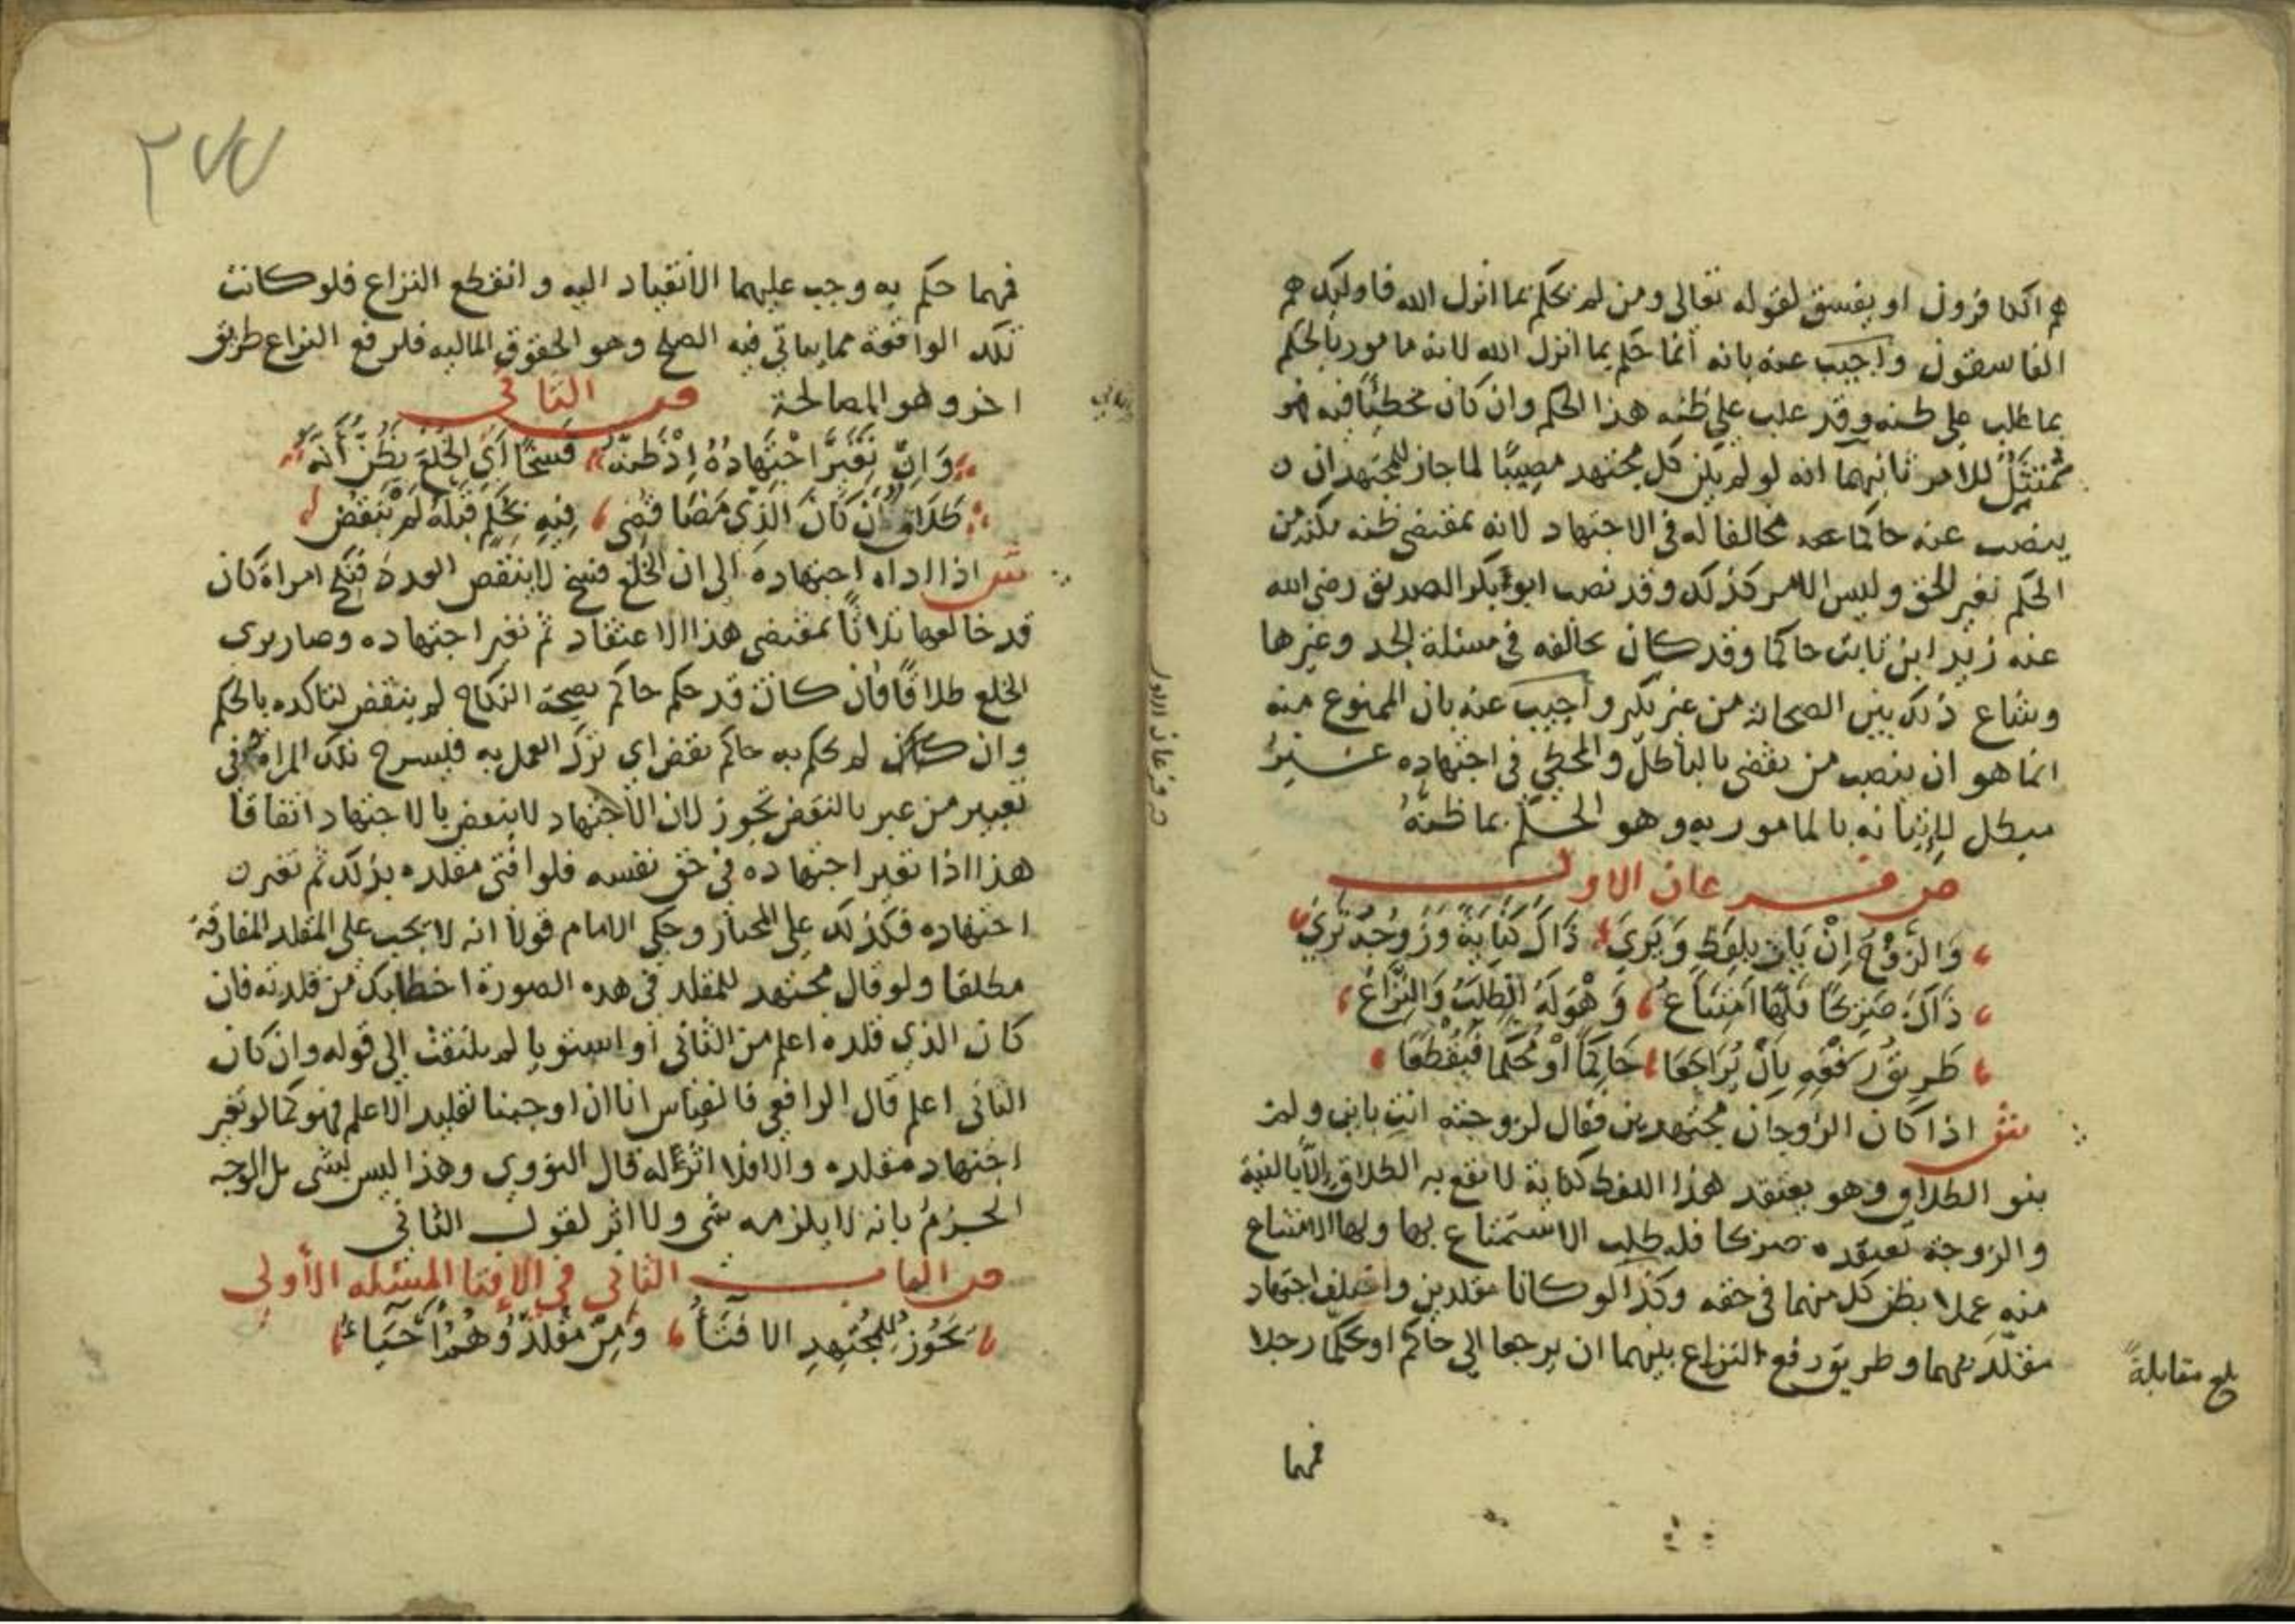 هم الكافرون او يفسق لقوله تعالى ومن لم يحكم بما انزل الله فاوليك هم
الفاسقون واجيب عنه بانه انما حكم بما انزل الله لانه مامور بالحكم
بما غلب على ظنه وقد غلب على ظنه هذا الحكم وان كان مخطئا فيه فهو
ممتثل للامر ثانيهما انه لو لم يكن كل مجتهد مصيبا لما جاز للمجتهد ان
ينصب عنه حاكما مخالفا له في الاجتهاد لانه بمقتضى ظنه مكنه من
الحكم بغير الحق وليس الامر كذلك وقد نصب ابو بكر الصديق رضي الله
عنه زيد ابن ثابت حاكما وقد كان يخالفه في مسئلة الجد وغيرها
وشاع ذلك بين الصحابة من غير نكير واجيب عنه بان الممنوع منه
انما هو ان ينصب من يقضي بالباطل والمخطي في اجتهاده غير
مبطل لاتيانه بالمامور به وهو الحكم بما ظنه
ص فرعان الاول
وَالزَّوْجُ إِنْ بَانَ بِلَفْظٍ وَيَرَى ذَاكَ كِنَايَةً وَزَوْجُهُ تَرَى
ذَاكَ صَرِيْحًا فَلَهَا امْتِنَاعُ وَهْوَ لَهُ الطَّلَبُ وَالنِّزَاعُ
طَرِيْقُ رَفْعِهِ بِأَنْ يُرَاجِعَا حَاكِمًا أَوْ مُحَكَّمًا فَيَقْطَعَا
ش اذا كان الزوجان مجتهدين فقال لزوجته انت باين ولم
ينو الطلاق وهو يعتقد هذا اللفظ كناية لا يقع به الطلاق إلا بالنية
والزوجة تعتقده صريحا فله طلب الاستمتاع بها ولها الامتناع
منه عملا بظن كل منهما في حقه وكذا لو كانا مقلدين واختلف اجتهاد
مقلديهما وطريق رفع النزاع بينهما ان يرجعا الى حاكم او يحكما رجلا
بلغ مقابلة
فمهما
ص فرعان الاول
٢٧٧
فمهما حكم به وجب عليهما الانقياد اليه وانقطع النزاع فلو كانت
تلك الواقعة مما ياتي فيه الصلح وهو الحقوق الماليه فلرفع النزاع طريق
اخر وهو المصالحة ص الثاني
وَإِنْ تَغَيَّرَ اجْتِهَادُهُ إِذْ ظَنَّهُ فَسْخًا أَيِ الْخُلْعَ يَظُنُّ أَنَّهُ
طَلَاقٌ إنْ كَانَ الَّذِي مَضَا قُضِي فِيْهِ بِحُكْمٍ قَبْلَهُ لَمْ يُنْقَضِ
ش اذا اداه اجتهاده الى ان الخلع فسخ لا ينقص العدد فنكح امراة كان
قد خالعها ثلاثا بمقتضى هذا الاعتقاد ثم تغير اجتهاده وصار يرى
الخلع طلاقا فان كان قد حكم حاكم بصحة النكاح لم ينقض لتاكده بالحكم
وان كان لم يحكم به حاكم نقض اي ترك العمل به فليسرح تلك المراة وفي
تعبير من عبر بالنقض تجوز لان الاجتهاد لا ينقض بالاجتهاد اتفاقا
هذا اذا تغير اجتهاده في حق نفسه فلو افتى مقلده بذلك ثم تغير
اجتهاده فكذلك على المختار وحكى الامام قولا انه لا يجب على المقلد المفارقة
مطلقا ولو قال مجتهد للمقلد في هذه الصورة اخطا بك من قلدته فان
كان الذي قلده اعلم من الثاني او استويا لم يلتفت الى قوله وان كان
الثاني اعلم قال الرافعي فالقياس انا ان اوجبنا تقليد الاعلم فهو كما لو تغير
اجتهاد مقلده والا فلا اثر له قال النووي وهذا ليس بشي بل الوجه
الجزم بانه لا يلزمه شي ولا اثر لقول الثاني
ص الباب الثاني في الإفتا المسئله الأولى
يَجُوزُ لِلْمُجْتَهِدِ الافْتَاءُ وَمِنْ مُقَلِّدٍ وَهُمْ أَحْيَاءُ